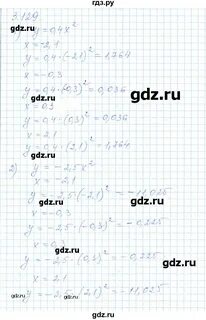 гдз.ру
3.129
1) y = 0,4x²
x = -2,1
y = 0,4 · (-2,1)² = 1,764
x = -0,3
y = 0,4 · (-0,3)² = 0,036
x = 0,3
y = 0,4 · (0,3)² = 0,036
x = 2,1
y = 0,4 · (2,1)² = 1,764
2) y = -2,5x²
x = -2,1
y = -2,5 · (-2,1)² = -11,025
x = -0,3
y = -2,5 · (-0,3)² = -0,225
x = 0,3
y = -2,5 · (0,3)² = -0,225
x = 2,1
y = -2,5 · (2,1)² = -11,025
gdz.ru
gdz.ru
gdz.ru
gdz.ru
gdz.ru
gdz.ru
gdz.ru
gdz.ru